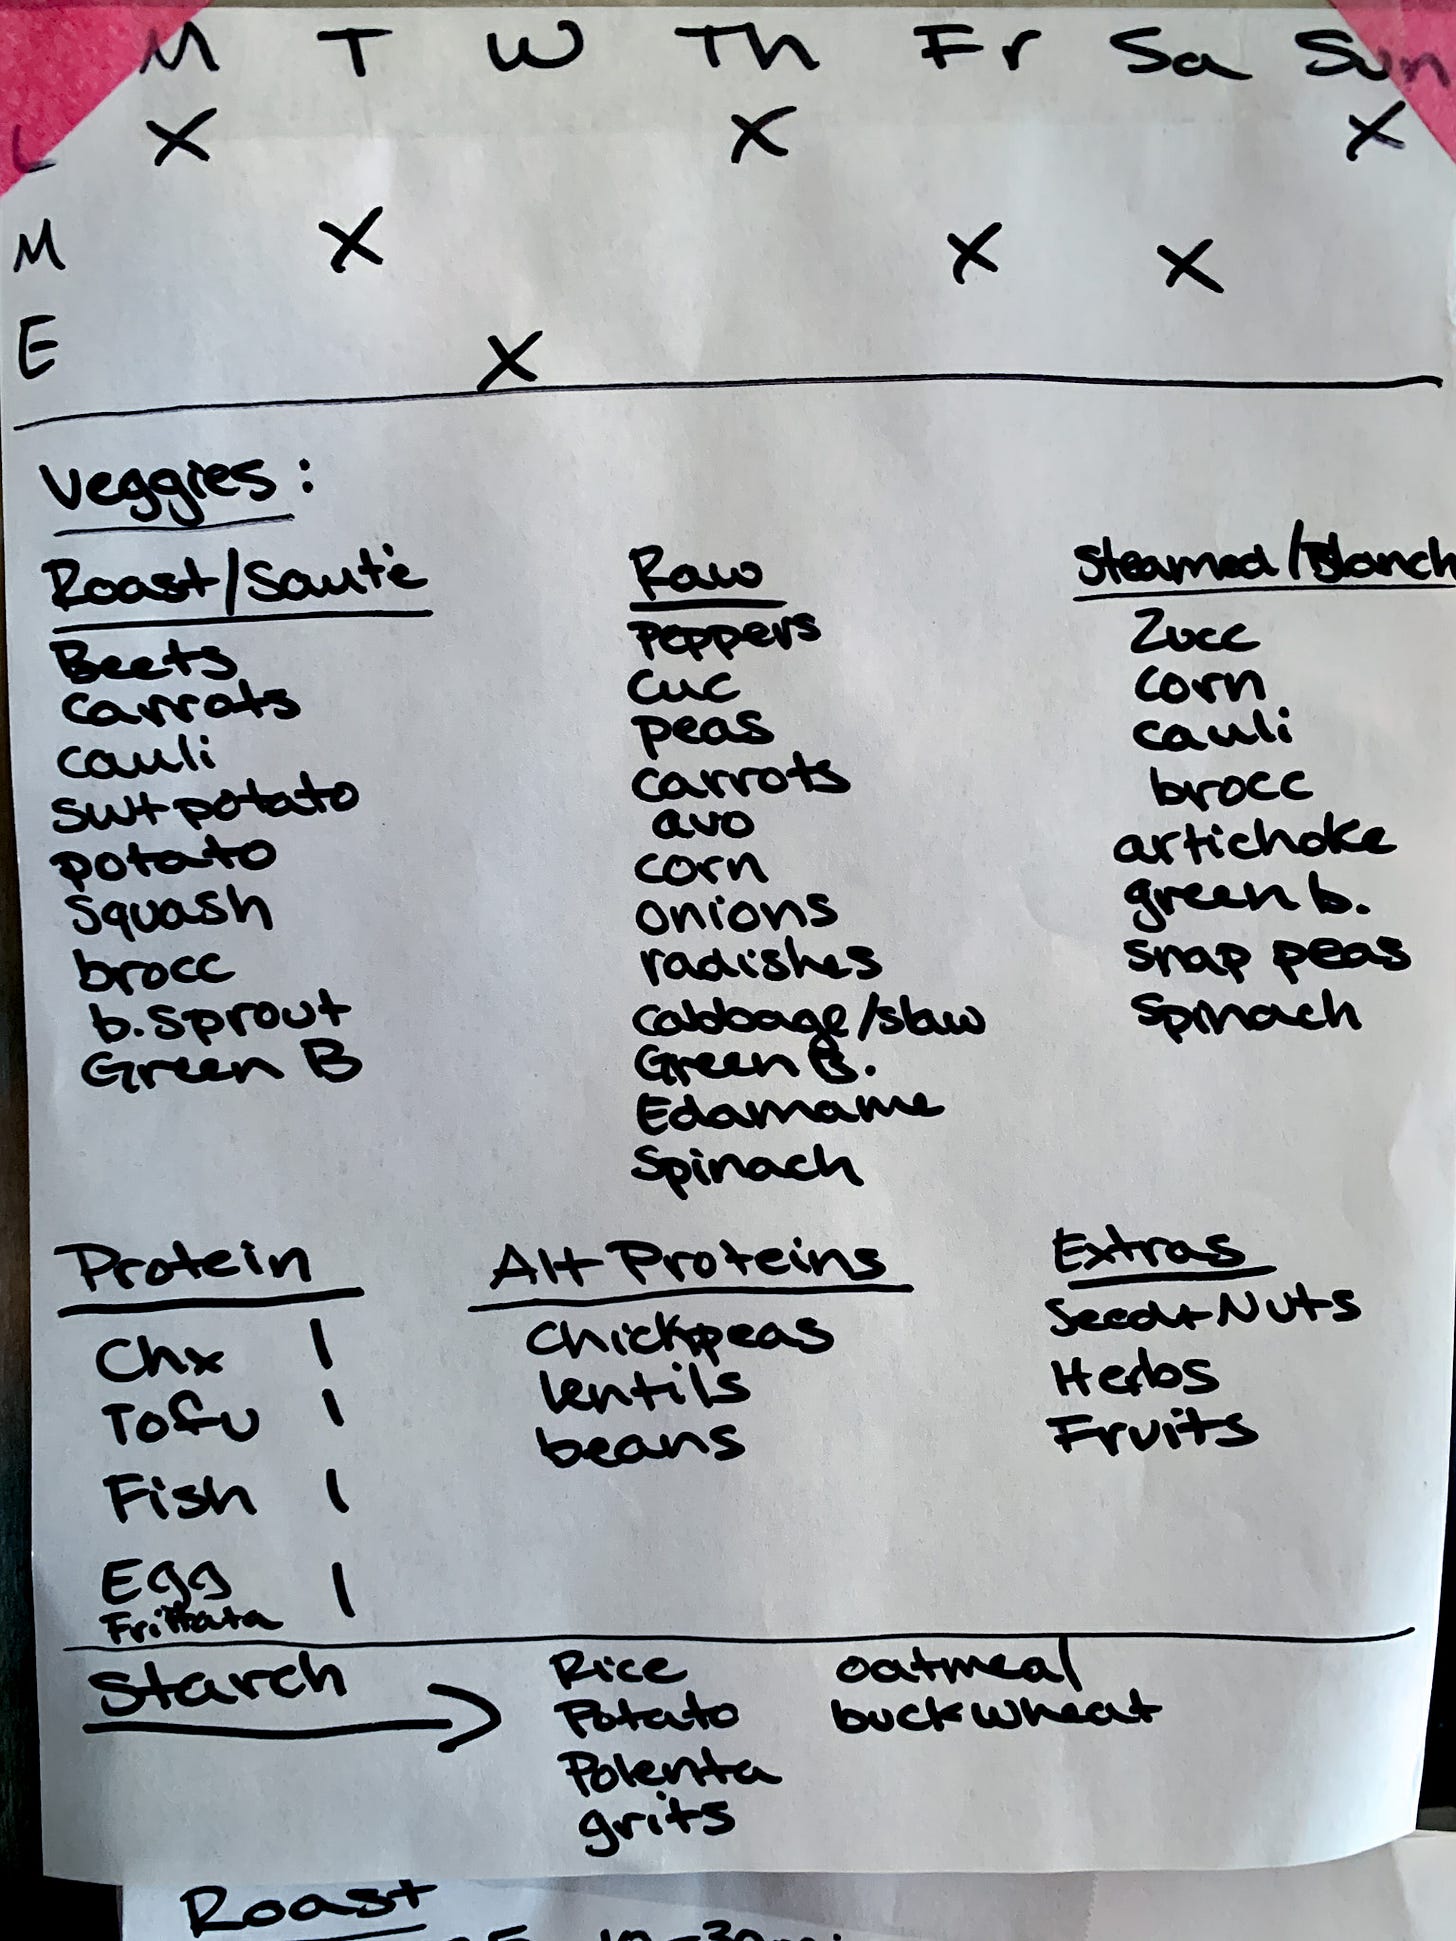 M T W Th Fr Sa Sun
L X X X
M X X X
E X
Veggies:
Roast/Sauté
Beets
Carrots
cauli
swt potato
potato
Squash
brocc
b.sprout
Green B
Raw
Peppers
cuc
peas
carrots
avo
corn
onions
radishes
cabbage/slaw
Green B.
Edamame
Spinach
Steamed/Blanch
Zucc
corn
cauli
brocc
artichoke
green b.
snap peas
Spinach
Protein
Chx 1
Tofu 1
Fish 1
Egg 1
Frittata
Alt Proteins
Chickpeas
lentils
beans
Extras
Seed+Nuts
Herbs
Fruits
Starch
Rice
Potato
Polenta
grits
oatmeal
buckwheat
Roast